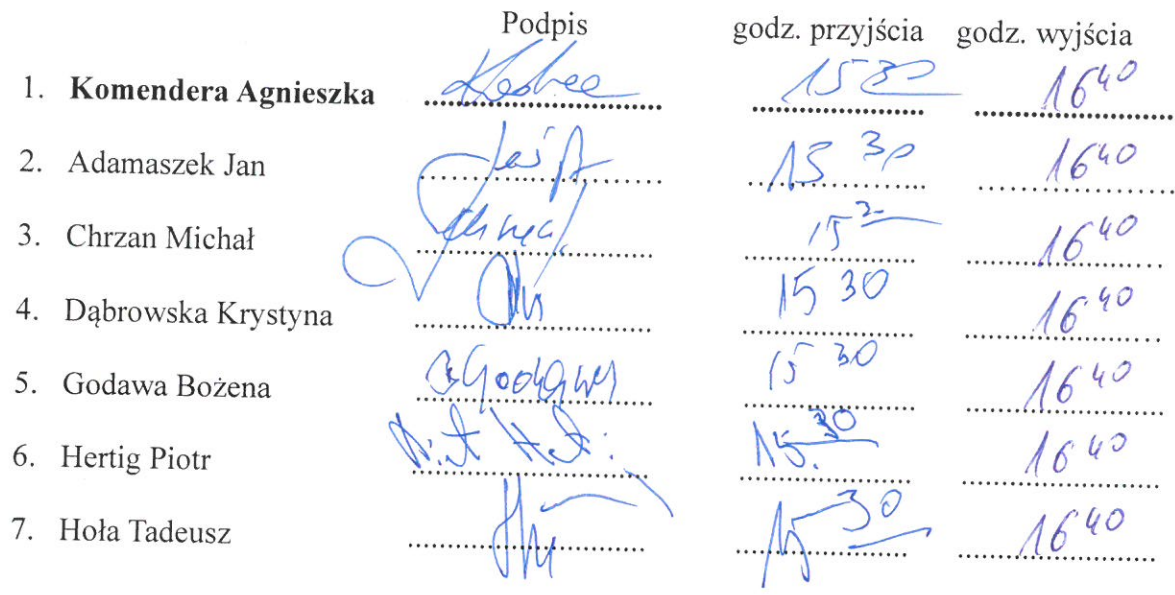 Podpis godz. przyjścia godz. wyjścia
1. Komendera Agnieszka 15 30 16 40
2. Adamaszek Jan 15 30 16 40
3. Chrzan Michał 15 16 40
4. Dąbrowska Krystyna 15 30 16 40
5. Godawa Bożena BGodawa 15 30 16 40
6. Hertig Piotr 15. 30 16 40
7. Hoła Tadeusz 15 30 16 40